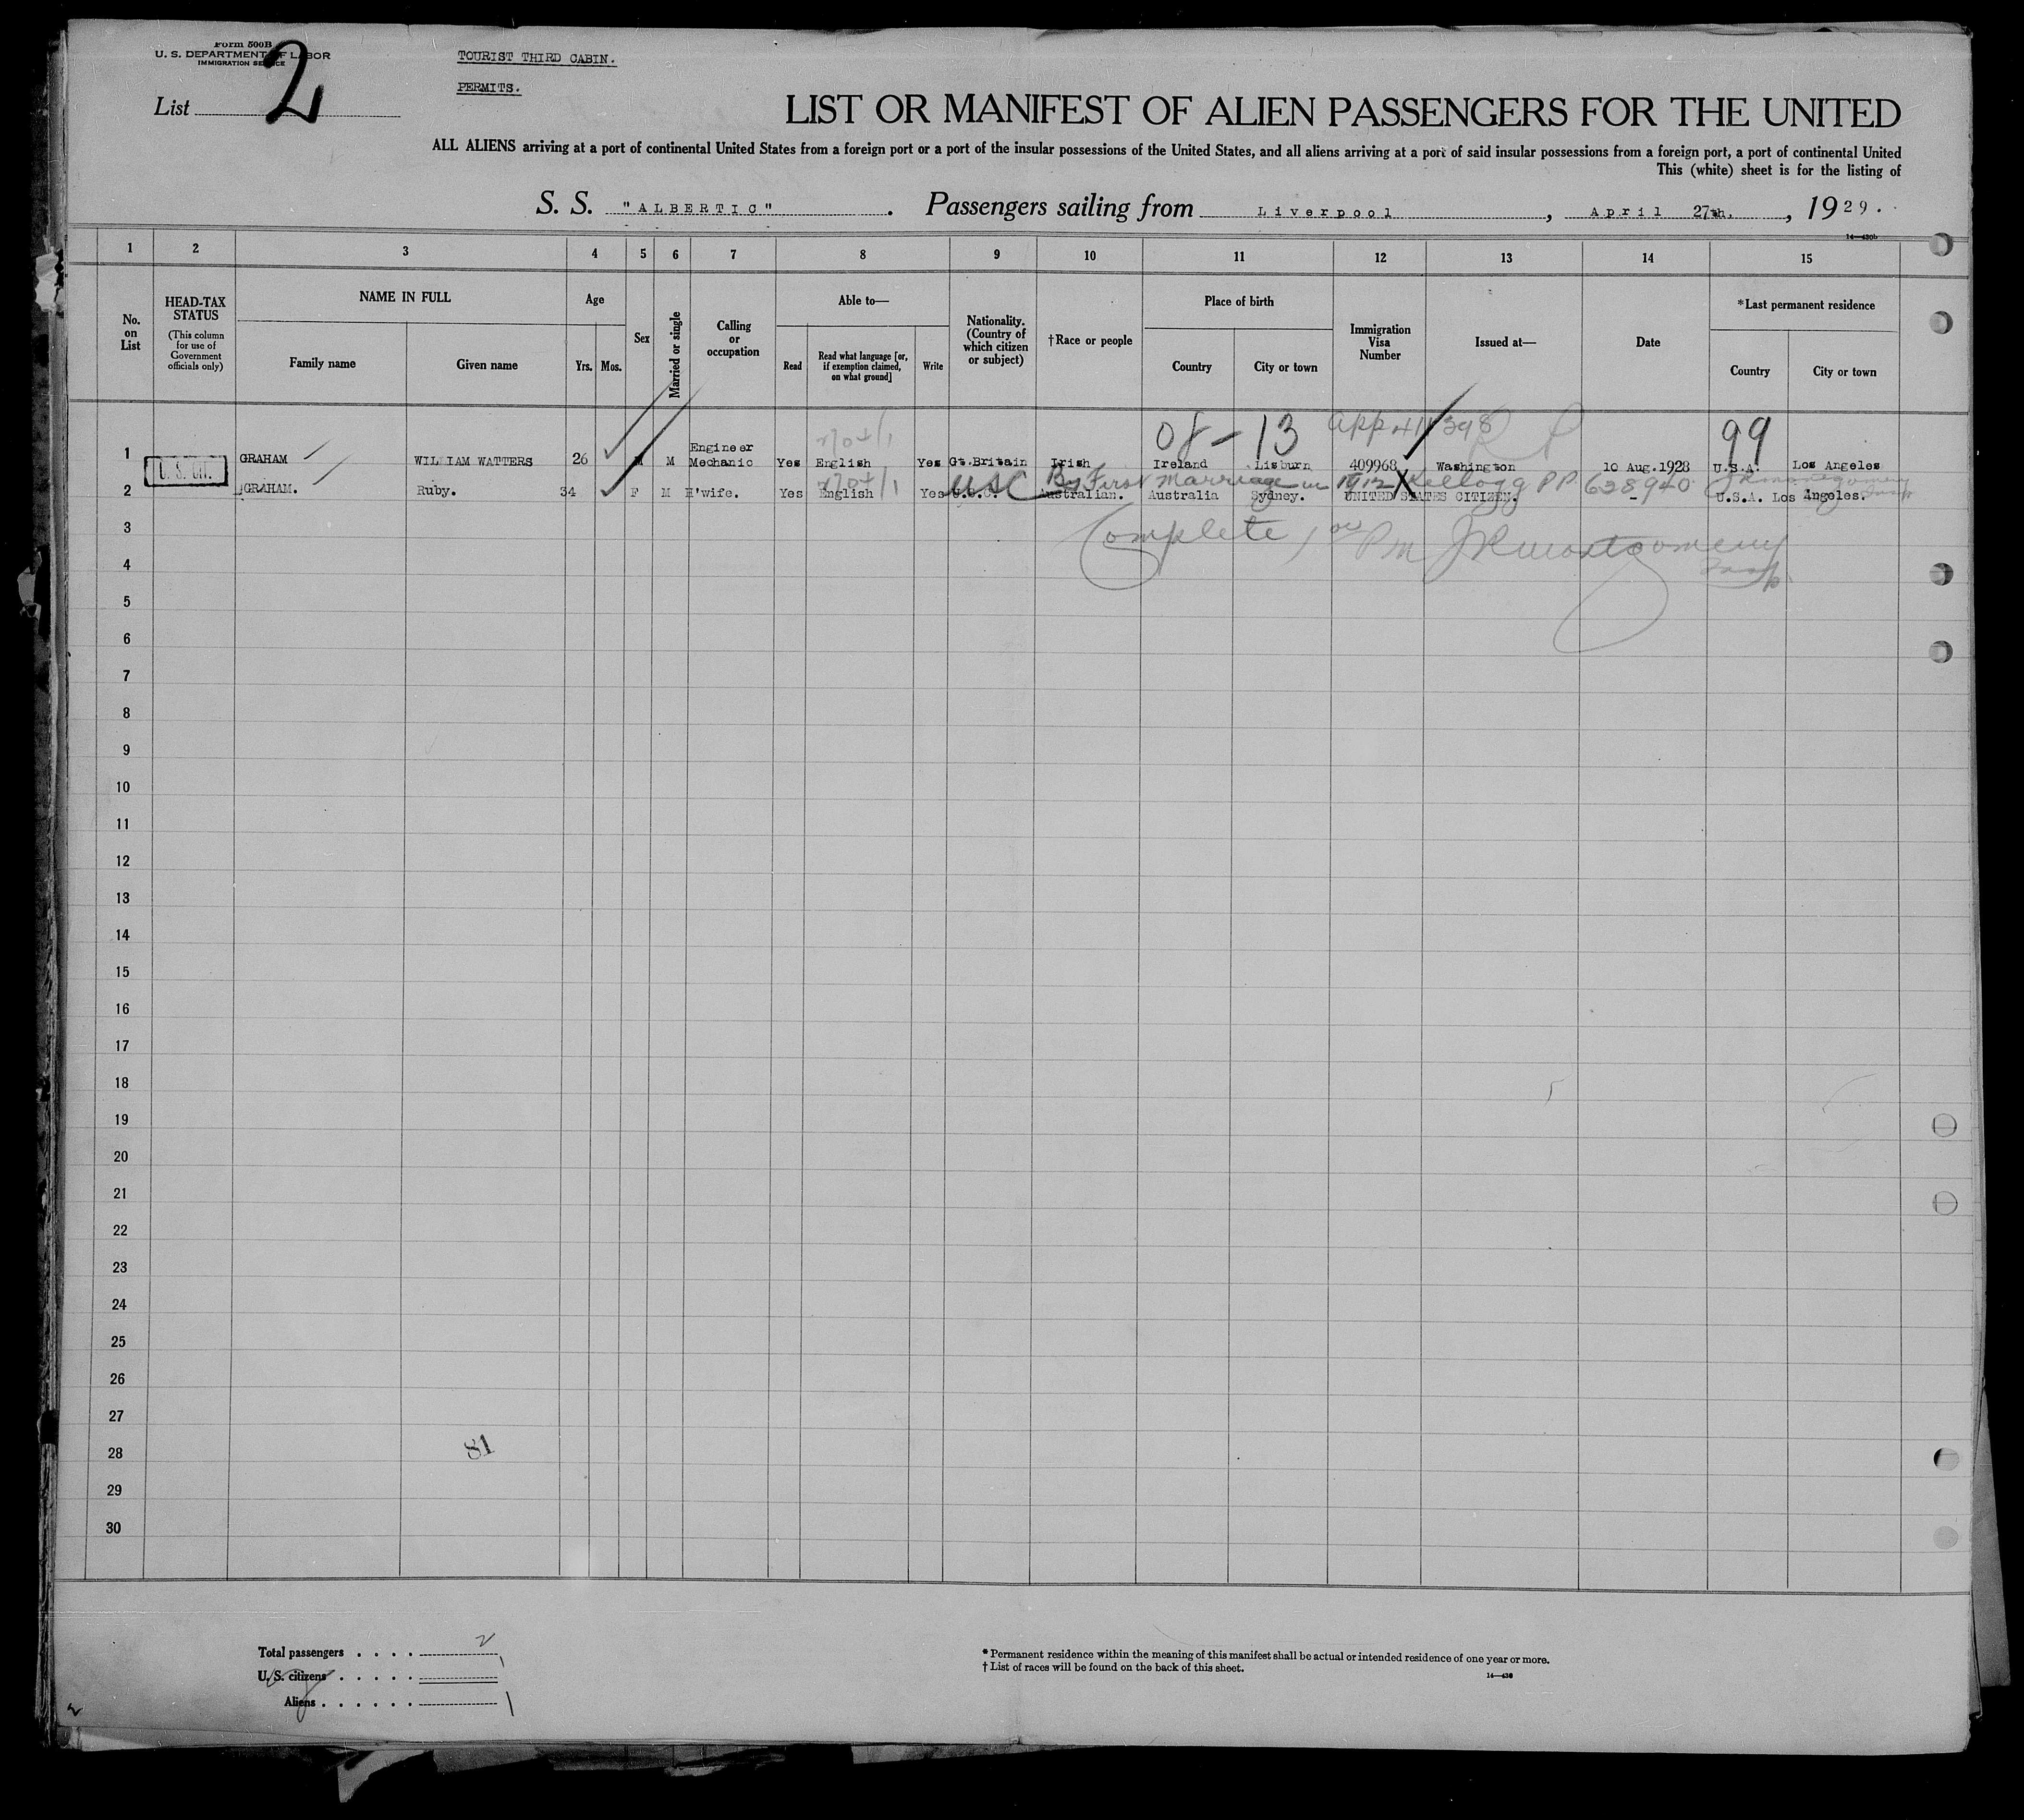 Form 500B
U. S. DEPARTMENT OF LABOR
IMMIGRATION SERVICE
List 2
TOURIST THIRD CABIN.
PERMITS.
LIST OR MANIFEST OF ALIEN PASSENGERS FOR THE UNITED
ALL ALIENS arriving at a port of continental United States from a foreign port or a port of the insular possessions of the United States, and all aliens arriving at a port of said insular possessions from a foreign port, a port of continental United
This (white) sheet is for the listing of
S. S. "ALBERTIC". Passengers sailing from Liverpool, April 27th., 1929.
14—430b
1 2 3 4 5 6 7 8 9 10 11 12 13 14 15
No. on List
HEAD-TAX STATUS
(This column for use of Government officials only)
NAME IN FULL
Family name
Given name
Age
Yrs. Mos.
Sex
Married or single
Calling or occupation
Able to—
Read
Read what language [or, if exemption claimed, on what ground]
Write
Nationality. (Country of which citizen or subject)
†Race or people
Place of birth
Country
City or town
Immigration Visa Number
Issued at—
Date
*Last permanent residence
Country
City or town
08 - 13 App 411398 R P 99
1 GRAHAM WILLIAM WATTERS 26 M M Engineer Mechanic Yes English Yes Gt.Britain Irish Ireland Lisburn 409968 Washington 10 Aug.1928 U.S.A. Los Angeles
U. S. CIT.
USC By First Marriage in 1912 X Kellogg PP 628940 JRMontgomery Insp
2 GRAHAM. Ruby. 34 F M H'wife. Yes English Yes U.S.C. Australian. Australia Sydney. UNITED STATES CITIZEN. - U.S.A. Los Angeles.
Complete PM JRMontgomery
Insp.
3
4
5
6
7
8
9
10
11
12
13
14
15
16
17
18
19
20
21
22
23
24
25
26
27
28
29
30
81
Total passengers . . . . 2
U. S. citizens . . . . . 1
Aliens . . . . . . 1
* Permanent residence within the meaning of this manifest shall be actual or intended residence of one year or more.
† List of races will be found on the back of this sheet.
14—430
2